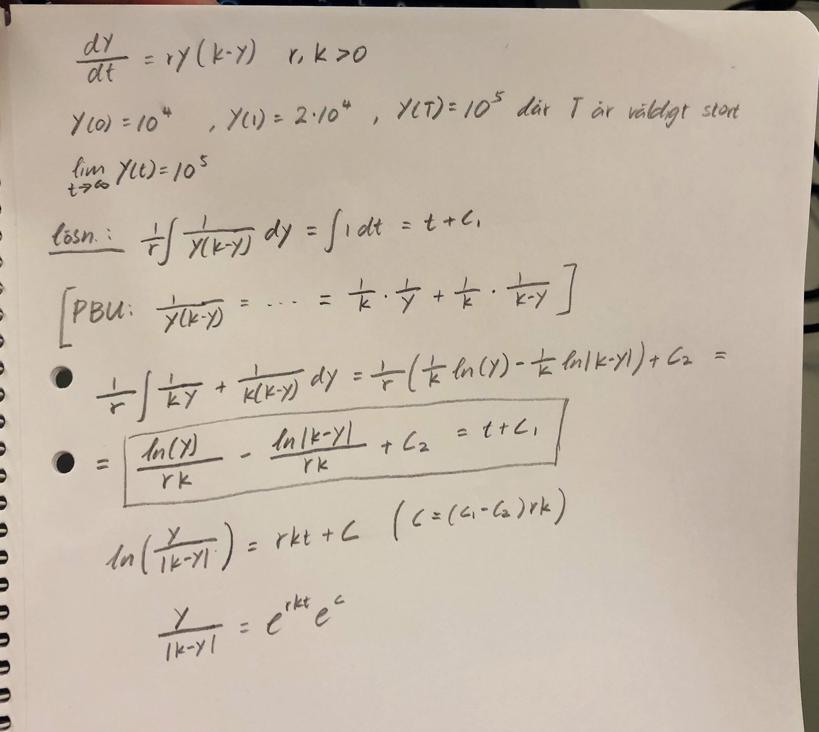 dy/dt = ry(k-y)   r, k > 0
y(0) = 10⁴ , y(1) = 2·10⁴ , y(T) = 10⁵ där T är väldigt stort
lim t→∞ y(t) = 10⁵
lösn.: 1/r ∫ 1/(y(k-y)) dy = ∫ 1 dt = t + C₁
[PBU: 1/(y(k-y)) = ... = 1/k · 1/y + 1/k · 1/(k-y)]
1/r ∫ 1/(ky) + 1/(k(k-y)) dy = 1/r (1/k ln(y) - 1/k ln|k-y|) + C₂ =
= ln(y)/(rk) - ln|k-y|/(rk) + C₂ = t + C₁
ln(y/|k-y|) = rkt + C   (C = (C₁-C₂)rk)
y/|k-y| = e^(rkt) e^C